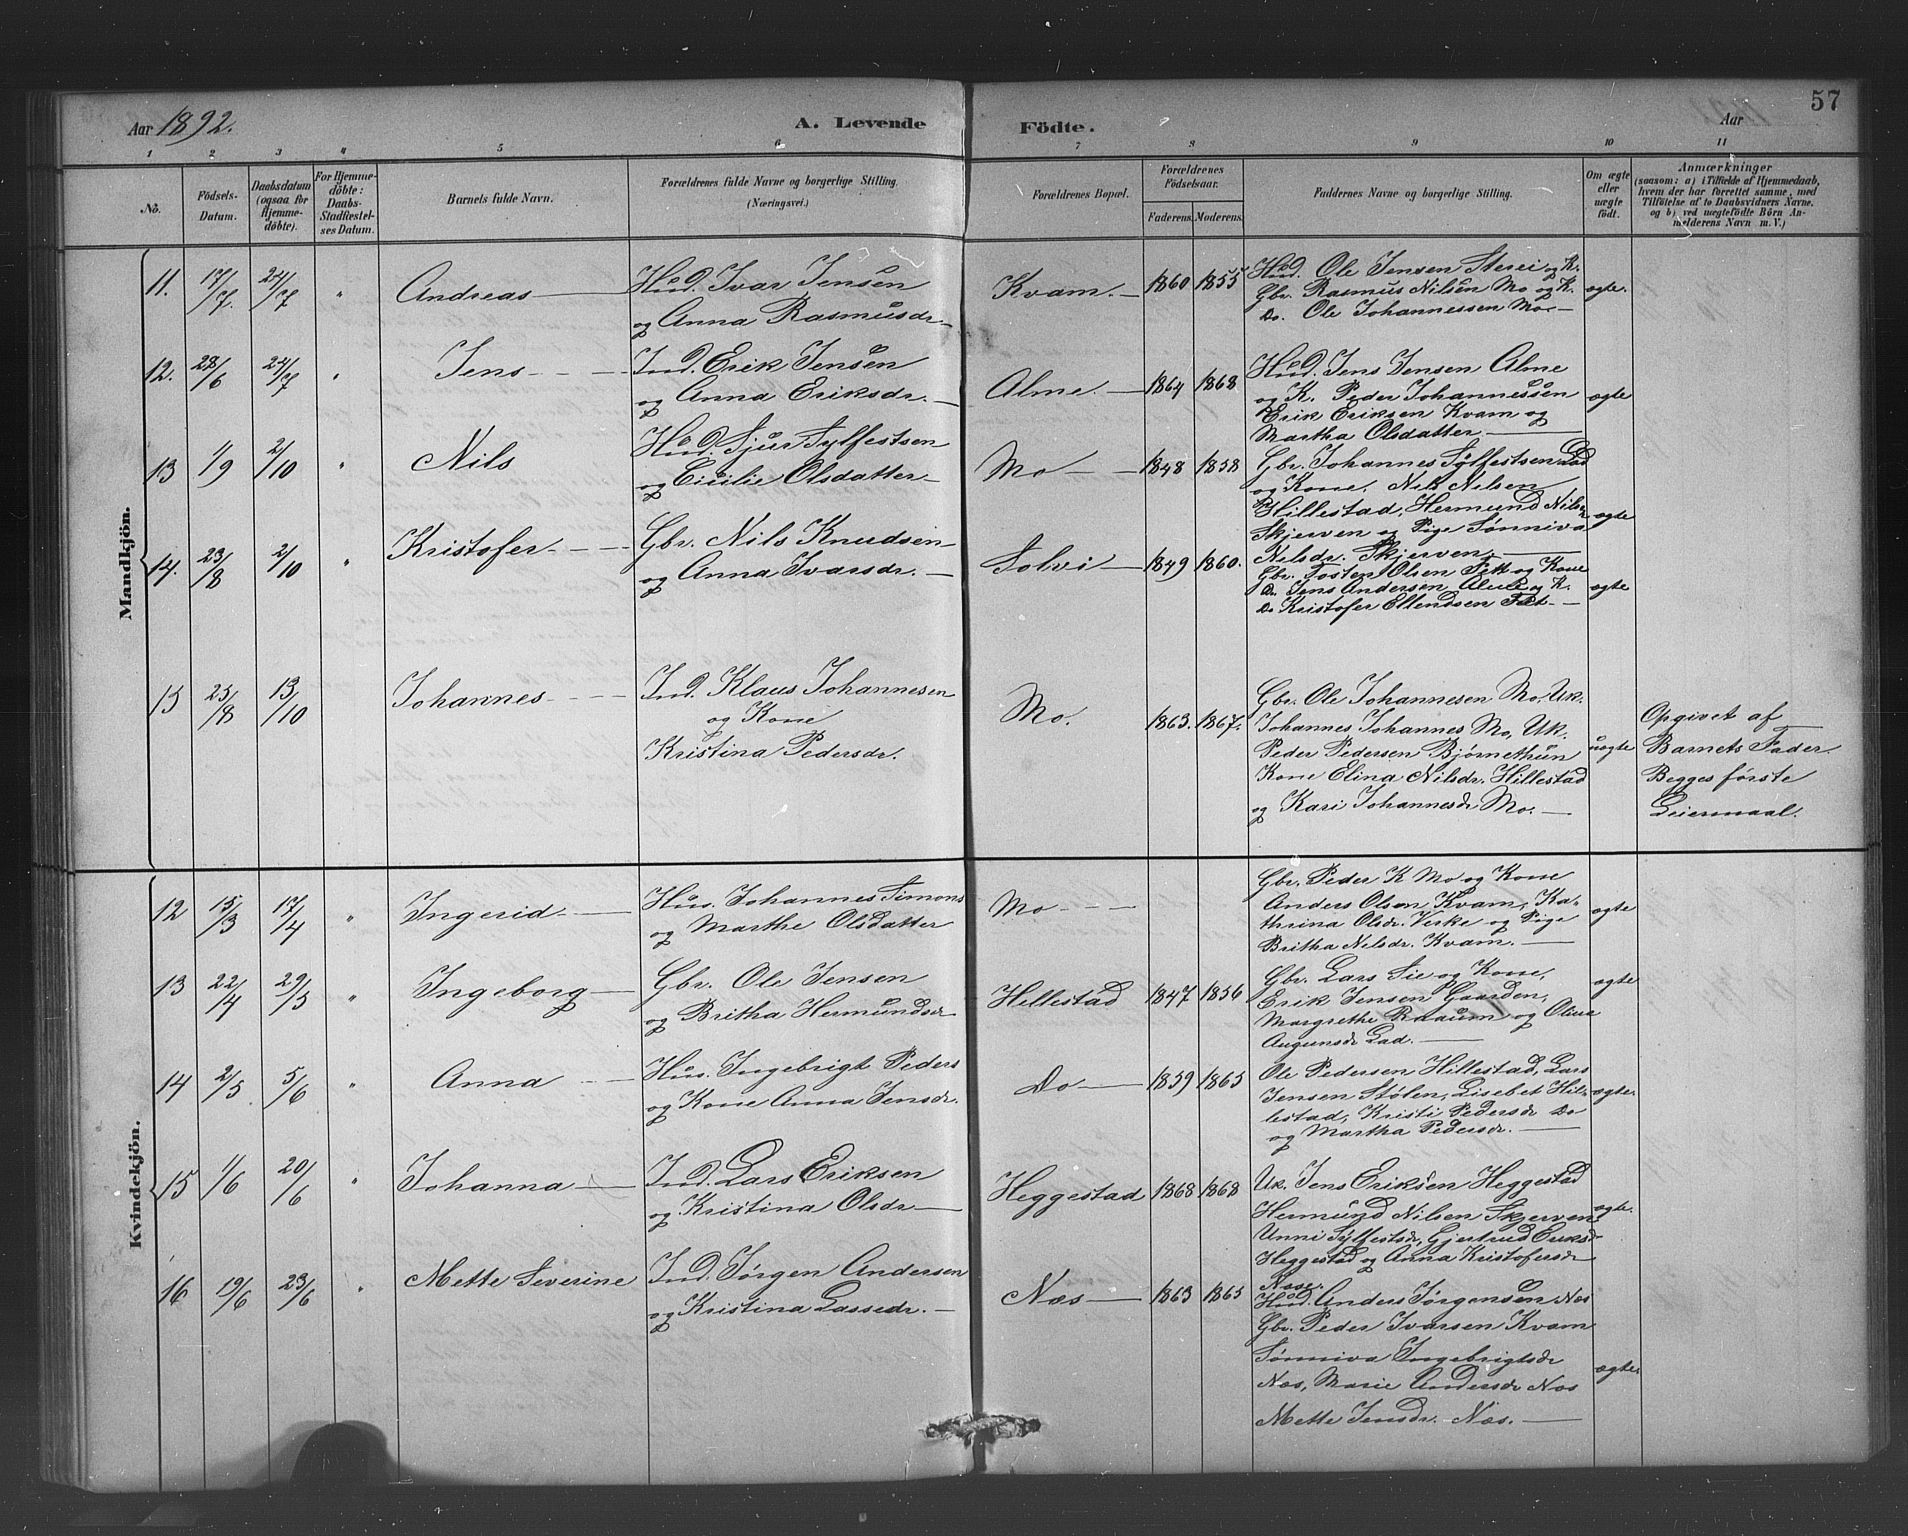 Aar 1892.
A. Levende Födte.
Aar
57
1 2 3 4 5 6 7 8 9 10 11
No.
Födsels-Datum.
Daabsdatum (ogsaa for Hjemme-döbte).
For Hjemme-döbte: Daabs-Stadfæstel-ses Datum.
Barnets fulde Navn.
Forældrenes fulde Navne og borgerlige Stilling. (Næringsvei.)
Forældrenes Bopæl.
Forældrenes Födselsaar.
Faderens. Moderens.
Faddernes Navne og borgerlige Stilling.
Om ægte eller uægte födt.
Anmærkninger
(saasom: a) i Tilfælde af Hjemmedaab, hvem der har forrettet samme, med Tilföielse af to Daabsvidners Navne, og b) ved uægtefödte Börn An-melderens Navn m. V.)
Mandkjön.
11. 17/7. 24/7 " Andreas
Husd. Ivar Jensen
og Anna Rasmusdr.
Kvam. 1860 1855
Husd. Ole Jensen Sterei og K.
Gbr. Rasmus Nilsen Mo og K.
Do. Ole Johannessen Mo.
ægte.
12. 28/6 24/7 " Jens
Ind. Erik Jensen
og Anna Eriksdr.
Alme. 1864 1868
Husd. Jens Jensen Alme
og K. Peder Johannessen
Erik Eriksen Kvam og
Martha Olsdatter
ægte
13 1/9 2/10 " Nils
Husd. Sjur Sylfestsen
og Cicilie Olsdatter
Mo 1848 1858
Gbr. Johannes Sylfestsen Lad
og Kone, Nils Nilsen
Hillestad, Hermund Nilsen
Skjerven og Pige Sønniva
Nilsdr. Skjerven
ægte
14. 23/8 2/10 " Kristofer
Gbr. Nils Knudsen
og Anna Ivarsdr.
Solvi 1849 1860.
Gbr. Tosten Olsen Fet og Kone
Do. Jens Andersen Alme og K.
Do Kristofer Ellendsen Fet
ægte
15 25/8 13/10 Johannes
Ind. Klaus Johannesen
og Kone
Kristina Pedersdr.
Mo. 1863. 1867.
Gbr. Ole Johannesen Mo, Uk.
Johannes Johannes Mo, Uk.
Peder Pedersen Bjørnethun
Kone Elina Nilsdr. Hillestad
og Kari Johannesdr Mo.
uægte
Opgivet af
Barnets Fader
Begges første
Leiermaal.
Kvindekjön.
12 15/3 17/4 " Ingerid
Hus. Johannes Simons
og Marthe Olsdatter
Mo
Gbr. Peder K Mo og Kone
Anders Olsen Kvam, Ka-
thrina Olsdr. Verke og Pige
Britha Nilsdr. Kvam.
ægte
13 22/4 29/5 " Ingeborg
Gbr. Ole Jensen
og Britha Hermundsdr
Hillestad 1847 1856
Gbr. Lars Sie og Kone,
Erik Jensen Gaarden,
Margrethe Raaum og Oline
Augunsdr Lad.
ægte
14 2/5 5/6 " Anna
Hus. Ingebrigt Peders
og Kone Anna Jensdr.
Do 1859 1865
Ole Pedersen Hillestad, Lars
Jensen Stølen, Lisebet Hil-
lestad, Kristi Pedersdr Do
og Martha Pedersdr.
ægte.
15 1/6 20/6 " Johanna
Ind. Lars Eriksen
og Kristina Olsdr.
Heggestad 1868 1868
Uk. Jens Eriksen Heggestad
Hermund Nilsen Skjerven
Unni Sylfestsdr, Gjertrud Eriksdr
Heggestad og Anna Kristofersdr
Nase.
ægte.
16 19/6 23/6 " Mette Severine
Ind. Jørgen Andersen
og Kristina Lassedr.
Næs 1863 1865
Husd. Anders Jørgensen Næs
Gbr. Peder Ivarsen Kvam
Sønniva Ingebrigtsdr
Næs, Marie Andersdr Næs
Mette Jensdr. Næs.
ægte.